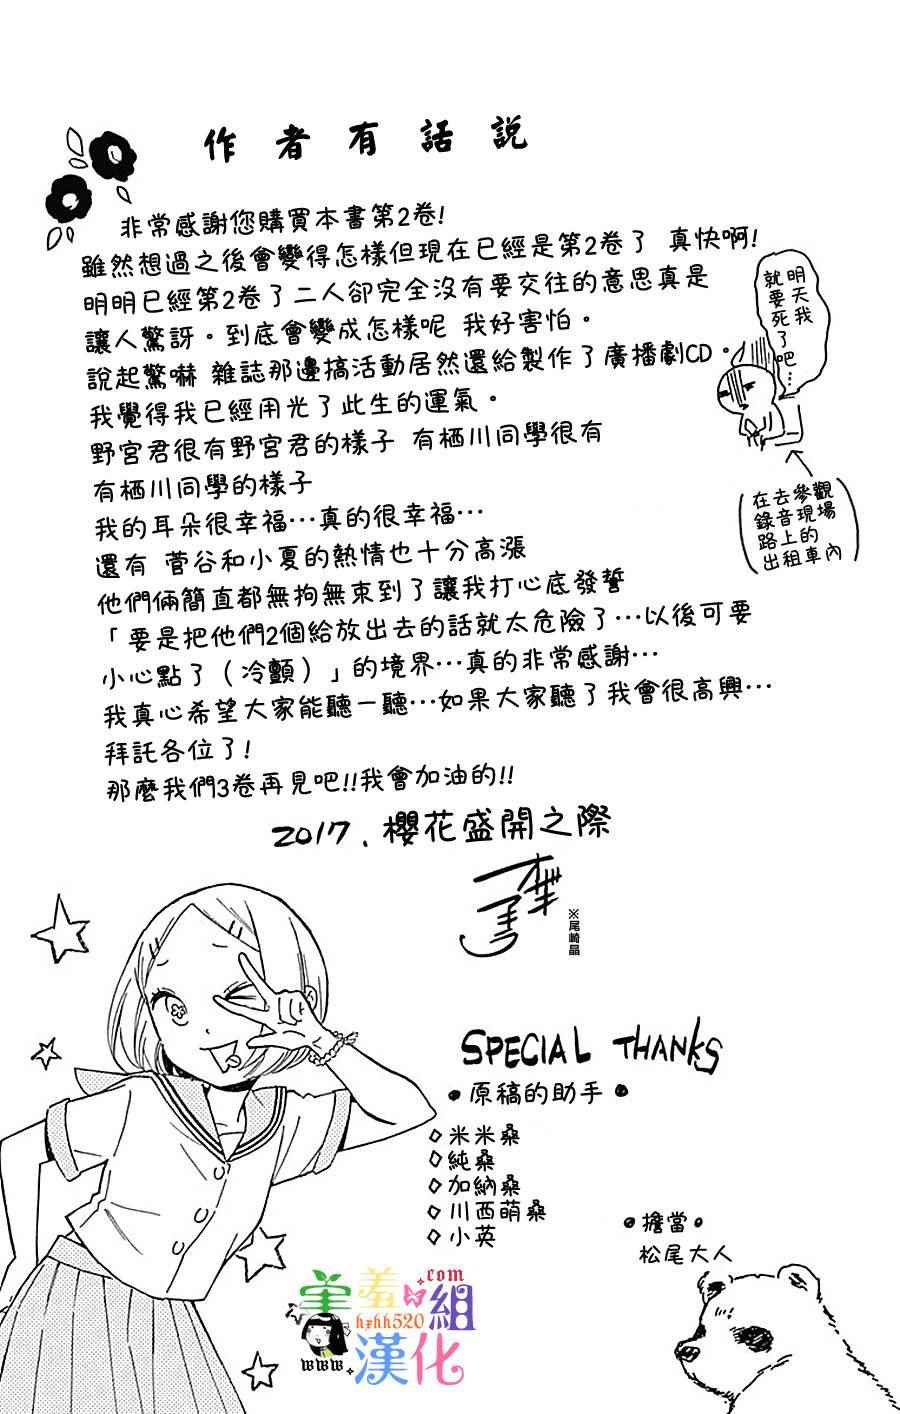 作者有話說
非常感謝您購買本書第2卷!
雖然想過之後會變得怎樣但現在已經是第2卷了 真快啊!
明明已經第2卷了二人卻完全沒有要交往的意思真是
讓人驚訝。到底會變成怎樣呢 我好害怕。
說起驚嚇 雜誌那邊搞活動居然還給製作了廣播劇CD。
我覺得我已經用光了此生的運氣。
野宮君很有野宮君的樣子 有栖川同學很有
有栖川同學的樣子
我的耳朵很幸福…真的很幸福…
還有 菅谷和小夏的熱情也十分高漲
他們倆簡直都無拘無束到了讓我打心底發誓
「要是把他們2個給放出去的話就太危險了…以後可要
小心點了（冷顫）」的境界…真的非常感謝…
我真心希望大家能聽一聽…如果大家聽了我會很高興…
拜託各位了!
那麼我們3卷再見吧!!我會加油的!!
2017.櫻花盛開之際
※尾崎晶
明天我
就要死了吧…
(在去參觀
錄音現場
路上的
出租車內)
SPECIAL THANKS
•原稿的助手•
◇米米桑
◇純桑
◇加納桑
◇川西萌桑
◇小英
•擔當•
松尾大人
羞羞組
.com
hxhh520
www.
漢化